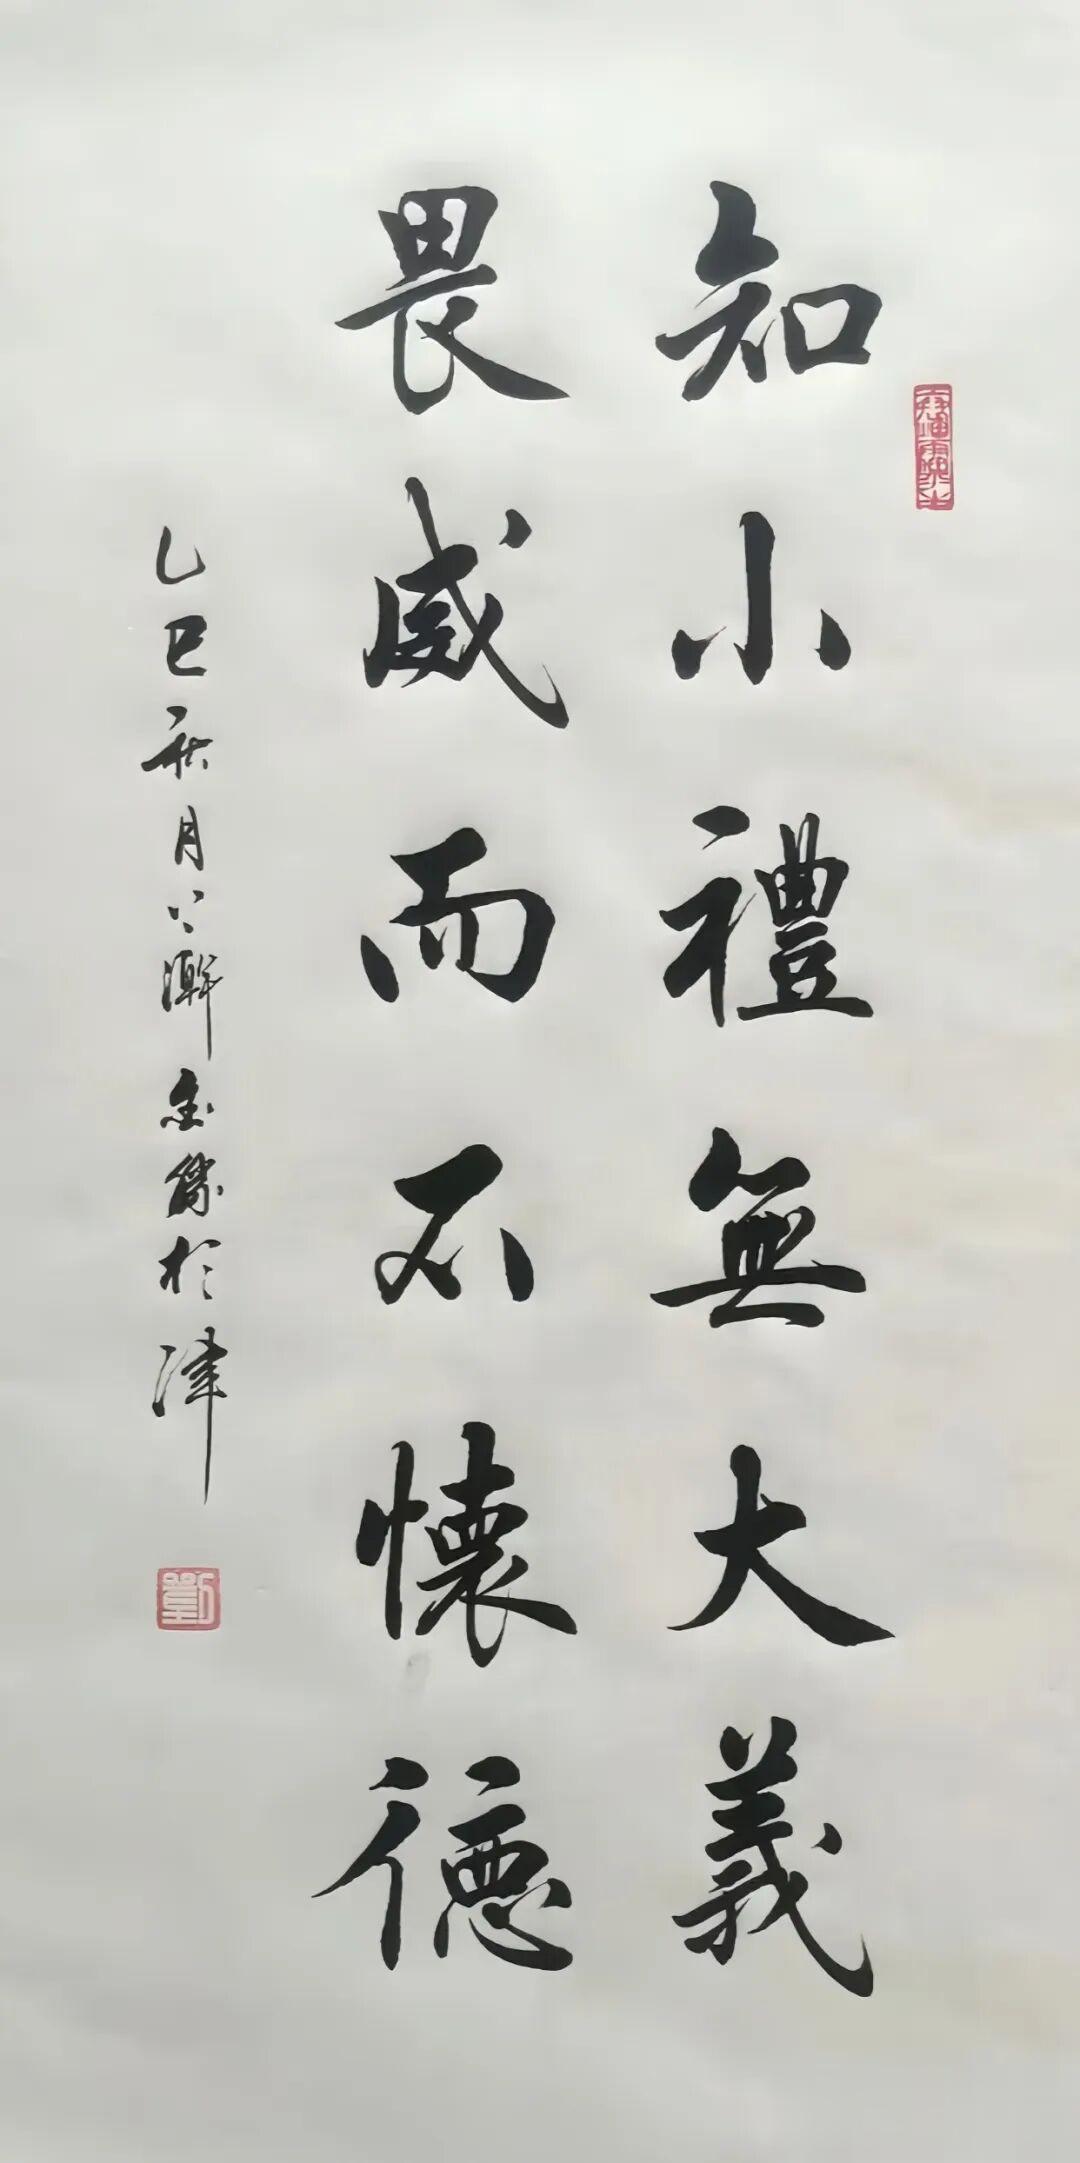 知小禮無大義
畏威而不懷德
乙巳秋月 金 於津
劉